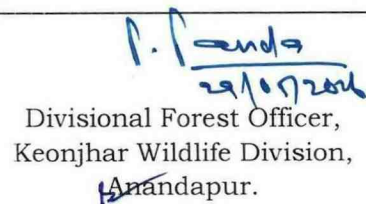 P. Panda
Divisional Forest Officer,
Keonjhar Wildlife Division,
Anandapur.